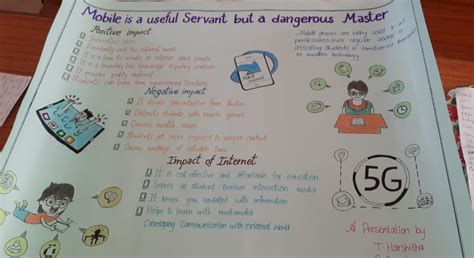 Mobile is a useful Servant but a dangerous Master
Positive impact
Familiarity with the external world
It is a boon for remote or interior area people
It is a knowledge acquiring platform
It provides quality material
Students can learn from experienced teachers
Mobile phones are being used in all
professions from regular usage to
assisting students to
to modern technology
Negative impact
It diverts concentration from studies
Distracts students with mobile games
Causes health issues
Students get more exposed to vulgar content
Causes wastage of valuable time
Impact of Internet
It is cost effective and affordable for education
Serves as student-teacher interaction media
It keeps you updated with information
Helps to learn with multimedia
Developing Communication with external World
5G
A Presentation by
T. Harshitha